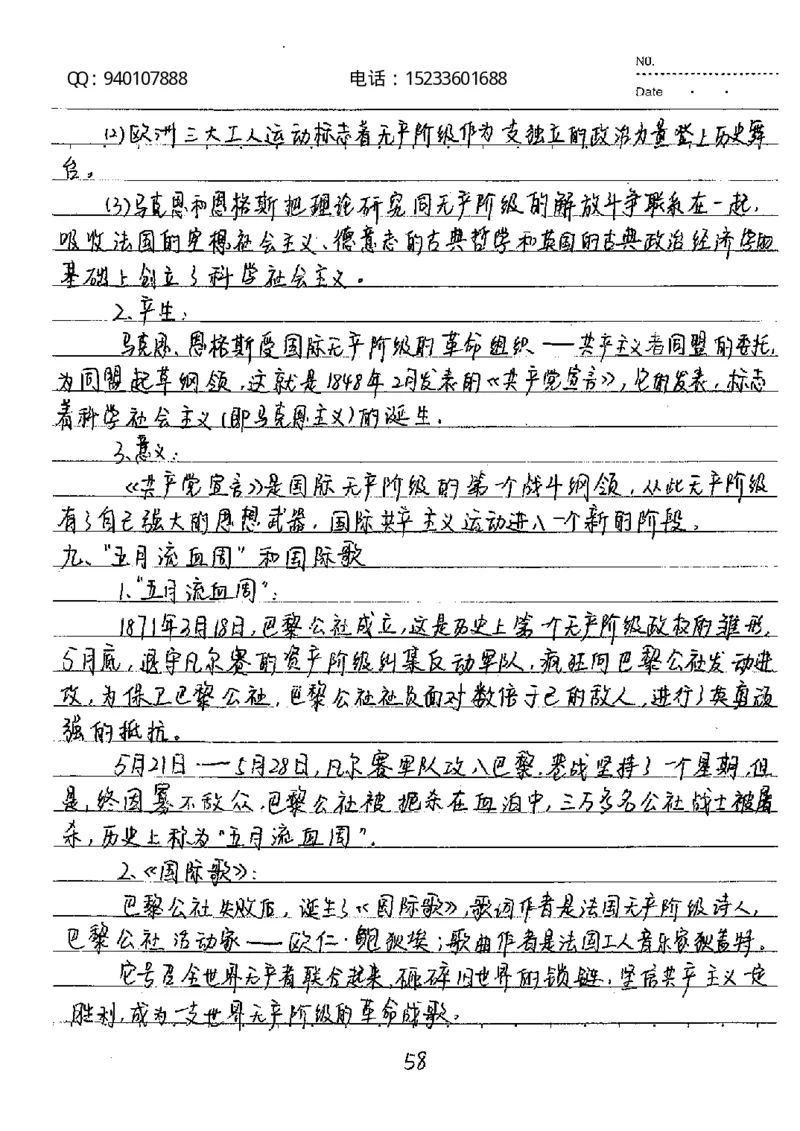 QQ：940107888 电话：15233601688 NO.
Date . .
(2)欧洲三大工人运动标志着无产阶级作为支独立的政治力量登上历史舞
台。
(3)马克思和恩格斯把理论研究同无产阶级的解放斗争联系在一起，
吸收法国的空想社会主义、德意志的古典哲学和英国的古典政治经济学的
基础上创立了科学社会主义。
2.产生：
马克思、恩格斯受国际无产阶级的革命组织——共产主义者同盟的委托，
为同盟起草纲领，这就是1848年2月发表的《共产党宣言》，它的发表，标志
着科学社会主义(即马克思主义)的诞生.
3.意义：
《共产党宣言》是国际无产阶级的第一个战斗纲领，从此无产阶级
有了自己强大的思想武器，国际共产主义运动进入一个新的阶段。
九、"五月流血周"和国际歌
1."五月流血周"：
1871年3月18日，巴黎公社成立，这是历史上第一个无产阶级政权的雏形，
5月底，退守凡尔赛的资产阶级纠集反动军队，疯狂向巴黎公社发动进
攻，为保卫巴黎公社，巴黎公社社员面对数倍于己的敌人，进行了英勇顽
强的抵抗。
5月21日——5月28日，凡尔赛军队攻入巴黎，巷战坚持了一个星期，但
是，终因寡不敌众，巴黎公社被扼杀在血泊中，三万多名公社战士被屠
杀，历史上称为"五月流血周".
2.《国际歌》：
巴黎公社失败后，诞生了《国际歌》，歌词作者是法国无产阶级诗人，
巴黎公社活动家——欧仁·鲍狄埃；歌曲作者是法国工人音乐家狄盖特。
它号召全世界无产者联合起来，砸碎旧世界的锁链，坚信共产主义一定
胜利，成为一支世界无产阶级的革命战歌。
58